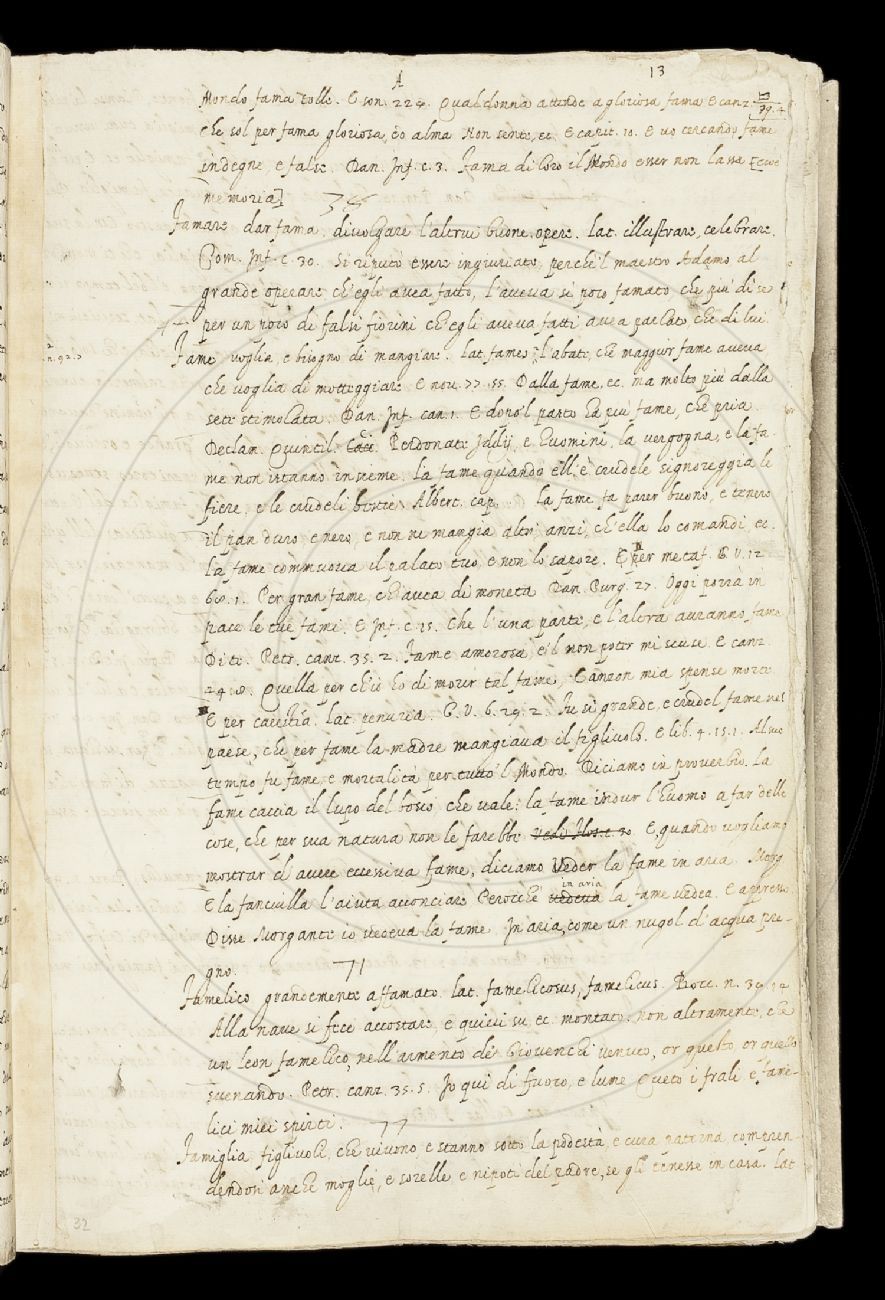 A
13
Mondo fama tolle. E son. 224. Qual donna attende a gloriosa fama E canz.
39. 4
che sol per fama gloriosa, ed alma Non sente, ec. E capit. 10. E vo cercando fame
indegne, e false. Dan. Inf. c. 3. Fama di loro il Mondo esser non lassa [cioè
memoria]
Famare dar fama. divolgare l'altrui buone opere. lat. illustrare, celebrare.
Com. Inf. c. 30. Si reputò essere ingiuriato, perchè 'l maestro Adamo al
grande operare ch'egli avea fatto, l'aveva sì poco famato, che più di se
per un poco di falsi fiorini ch'egli aveva fatti avea parlato, che di lui.
Fame voglia, e bisogno di mangiare. lat. fames. L'abate, che maggior fame aveva
n. 92.
che voglia di motteggiare E nov. 77. 55. Dalla fame, ec. ma molto più dalla
sete stimolata. Dan. Inf. can. 1. E dopo 'l pasto ha più fame, che pria.
Declam. Quintil. Perdonate Iddij, e huomini, la vergogna, e la fa-
me non istanno insieme. La fame quando ell'è crudele signoreggia le
fiere, e le crudeli bestie. Albert. cap. la fame fa parer buono, e tenero
il pan duro e nero, e non ne mangia altri anzi, ch'ella lo comandi, ec.
La fame commuova il palato tuo, e non lo sapore. E per metaf. G. V. 12
68. 1. Per gran fame, ch'avea di moneta Dan. Purg. 27. Oggi porrà in
pace le tue fami. E Inf. c. 15. Che l'una parte, e l'altra avranno fame
Di te. Petr. canz. 35. 2. Fame amorosa, e 'l non poter mi scuse. E canz.
24. 8. Quella per ch'io ho di morir tal fame, Canzon mia spense morte
E per carestia. lat. penuria. G. V. 6. 29. 2. Fu sì grande, e crudel fame nel
paese, che per fame la madre mangiava il figlivolo. E lib. 4. 15. 1. Al suo
tempo fu fame e mortalità per tutto 'l Mondo. Diciamo in proverbio. La
fame caccia il lupo del bosco che vale: la fame indur l'huomo a far delle
cose, che per sua natura non le farebbe E, quando vogliamo
mostrar d'avere eccessiva fame, diciamo Veder la fame in aria. Morg.
E la fanciulla l'aiuta acconciare Perocchè vedeva in aria la fame vedea. E appresso
Disse Morgante io vedeva la fame In aria, come un nugol d'acqua pre-
gno. 71
Famelico grandemente affamato lat. famelicosus, famelicus. Bocc. n.
Alla nave si fece accostare, e quivi su, ec. montato, non altramente, che
un leon famelico, nell'armento de' Giovenchi venuto, or questo, or quello
svenando. Petr. canz. 35. 5. Io qui di fuoco, e lume Queto i frali, e fame-
lici miei spirti. 77
Famiglia figlivoli, che vivono, e stanno sotto la podestà, e cura paterna, compren-
dendosi anche moglie, e sorelle e nipoti del padre, se gli tenesse in casa. lat
32